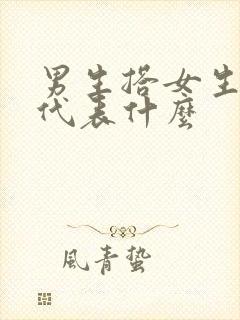 男生搭女生
代表什麼
風青蟄